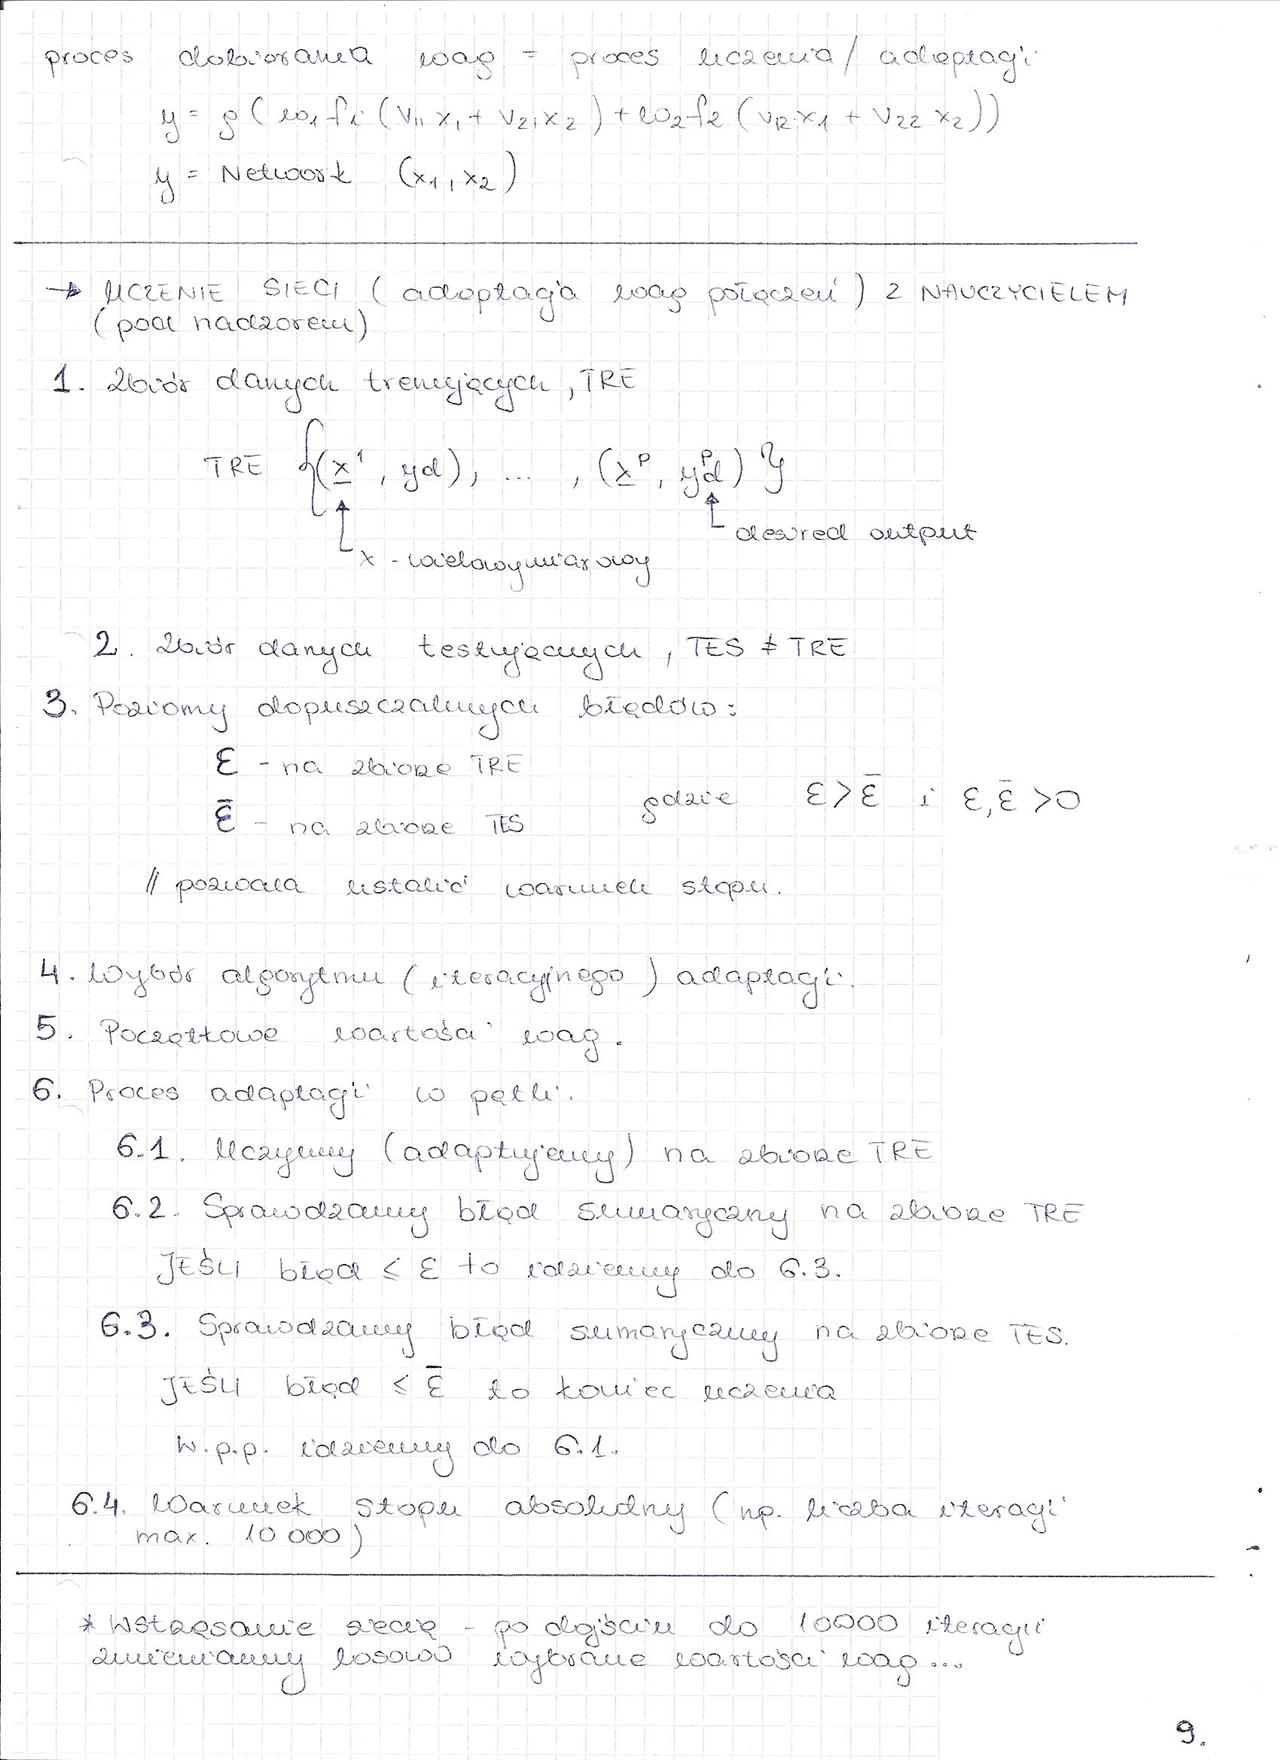 proces dobierania wag = proces uczenia / adaptacji
y = g ( w₁ f₁ ( v₁₁ x₁ + v₂₁ x₂ ) + w₂ f₂ ( v₁₂ x₁ + v₂₂ x₂ ))
y = Network (x₁, x₂)
→ UCZENIE SIECI ( adaptacja wag połączeń ) Z NAUCZYCIELEM
( pod nadzorem)
1. Zbiór danych trenujących, TRE
TRE {(x¹, yd), ... , (xᴾ, ydᴾ) }
desired output
x - wielowymiarowy
2. Zbiór danych testujących, TES ≠ TRE
3. Poziomy dopuszczalnych błędów:
ε - na zbiorze TRE
gdzie ε > ε̄ i ε, ε̄ > 0
ε̄ - na zbiorze TES
// pozwala ustalić warunek stopu.
4. Wybór algorytmu ( iteracyjnego ) adaptacji.
5. Początkowe wartości wag.
6. Proces adaptacji w pętli.
6.1. Uczymy (adaptujemy) na zbiorze TRE
6.2. Sprawdzamy błąd sumaryczny na zbiorze TRE
JEŚLI błąd ≤ ε to idziemy do 6.3.
6.3. Sprawdzamy błąd sumaryczny na zbiorze TES.
JEŚLI błąd ≤ ε̄ to koniec uczenia
w.p.p. idziemy do 6.1.
6.4. Warunek stopu absolutny (np. liczba iteracji
max. 10 000)
* Wstrząsanie siecią - po dojściu do 10000 iteracji
zmieniamy losowo wybrane wartości wag ...
9.